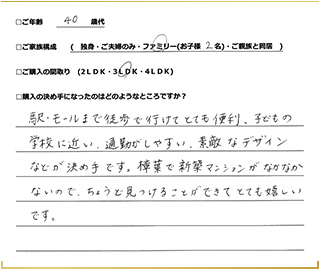 □ご年齢 40 歳代
□ご家族構成 ( 独身・ご夫婦のみ・ファミリー(お子様 2名)・ご親族と同居 )
□ご購入の間取り (2LDK・3LDK・4LDK)
□購入の決め手になったのはどのようなところですか?
駅・モールまで徒歩で行けてとても便利、子どもの
学校に近い、通勤がしやすい、素敵なデザイン
などが決め手です。樟葉で新築マンションがなかなか
ないので、ちょうど見つけることができてとても嬉しい
です。